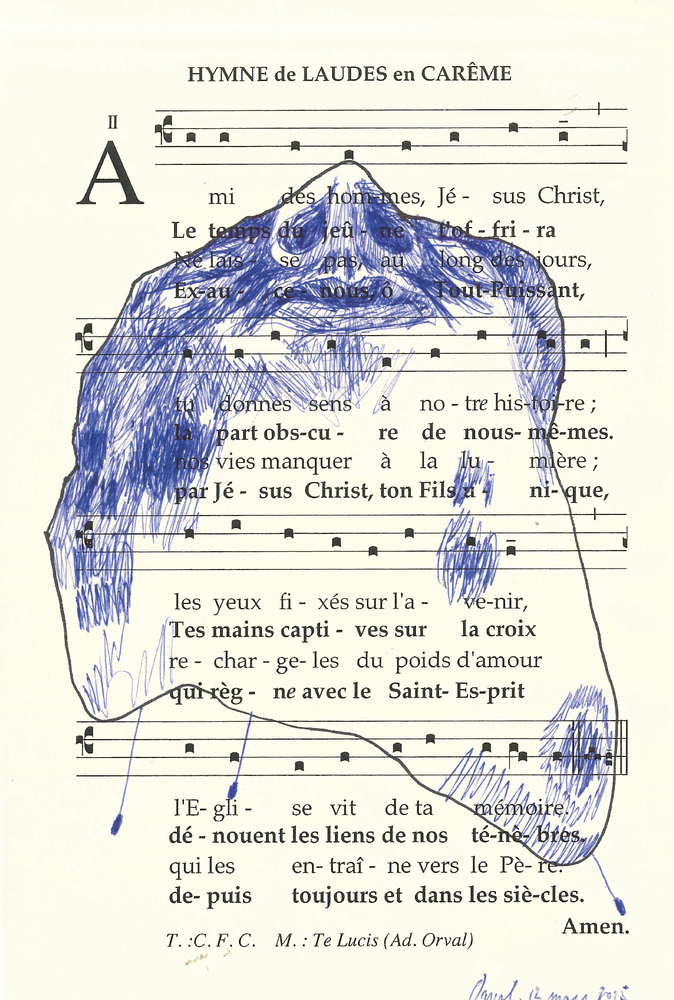 HYMNE de LAUDES en CARÊME
II
A
mi des hommes, Jé - sus Christ,
Le temps du jeû - ne t'of - fri - ra
Ne lais - se pas, au long des jours,
Ex-au - ce - nous, ô Tout-Puissant,
tu donnes sens à no - tre his-toi-re ;
la part obs-cu - re de nous- mê-mes.
nos vies manquer à la lu - mière ;
par Jé - sus Christ, ton Fils u - ni- que,
les yeux fi - xés sur l'a - ve-nir,
Tes mains capti - ves sur la croix
re - char - ge- les du poids d'amour
qui règ - ne avec le Saint- Es-prit
l'E- gli - se vit de ta mémoire.
dé - nouent les liens de nos té-nè- bres.
qui les en- traî - ne vers le Pè- re.
de- puis toujours et dans les siè-cles.
Amen.
T. :C. F. C. M. : Te Lucis (Ad. Orval)
12 mars 2025